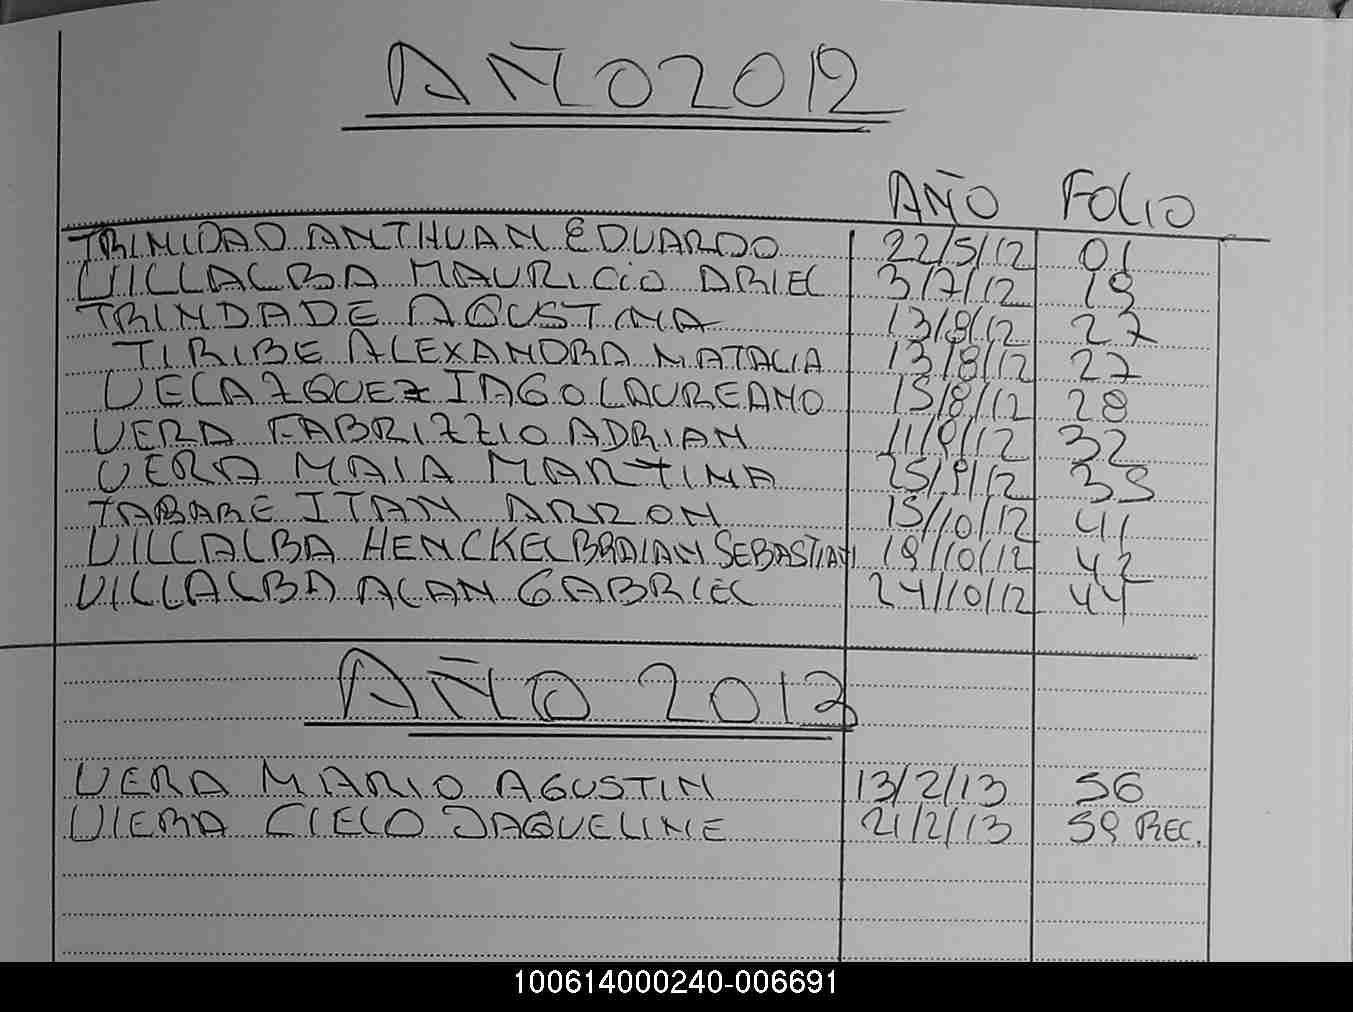 AÑO 2012
AÑO FOLIO
TRINIDAD ANTHUAN EDUARDO 22/5/12 01
VILLALBA MAURICIO ARIEL 3/7/12 19
TRINDADE AGUSTINA 13/8/12 27
TIRIBE ALEXANDRA NATALIA 13/8/12 27
VELAZQUEZ IAGO LAUREANO 15/8/12 28
VERA FABRIZZIO ADRIAN 11/9/12 32
VERA MAIA MARTINA 25/9/12 35
TABARE ITAN ARRON 15/10/12 41
VILLALBA HENCKEL BRAIAN SEBASTIAN 19/10/12 42
VILLALBA ALAN GABRIEL 24/10/12 44
AÑO 2013
VERA MARIO AGUSTIN 13/2/13 56
VIERA CIELO JAQUELINE 21/2/13 59 REC.
100614000240-006691